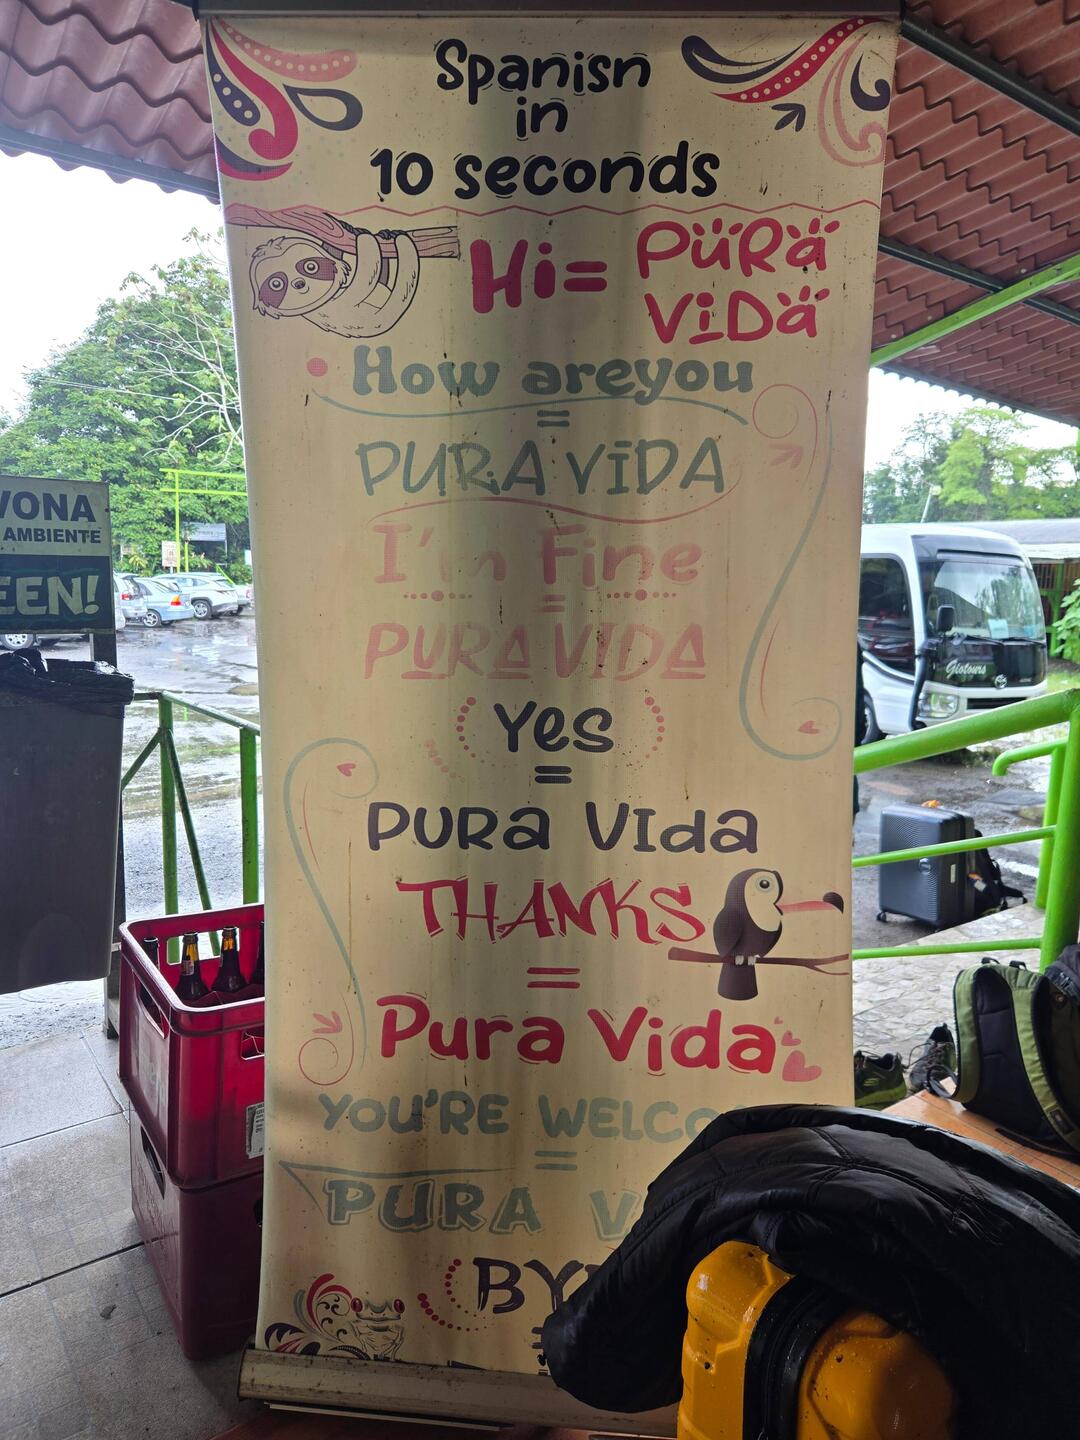 Spanisn
in
10 seconds
Hi=
PURA
VIDA
How areyou
=
PURA VIDA
I'm Fine
=
PURA VIDA
Yes
=
PURA VIda
THANKS
=
Pura Vida
YOU'RE WELCO
=
PURA V
BY
VONA
AMBIENTE
EEN!
Giotours